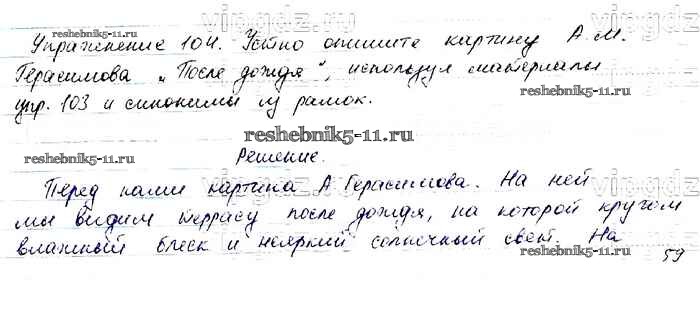 vipgdz
reshebnik5-11.ru
Упражнение 104. Устно опишите картину А. М.
Герасимова „После дождя“, используя материалы
упр. 103 и синонимы из рамок.
reshebnik5-11.ru
reshebnik5-11.ru
Решение.
vipgdz
Перед нами картина А. Герасимова. На ней
мы видим террасу после дождя, на которой кругом
влажный блеск и неяркий солнечный свет. На
reshebnik5-11.ru
59